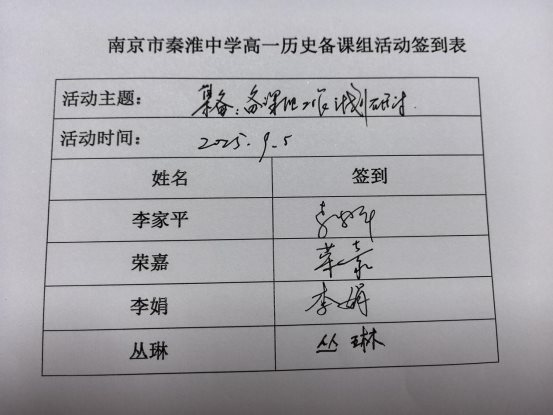 南京市秦淮中学高一历史备课组活动签到表
活动主题： 集备：备课组工作计划研讨
活动时间： 2025.9.5
姓名 签到
李家平 李家平
荣嘉 荣嘉
李娟 李娟
丛琳 丛琳